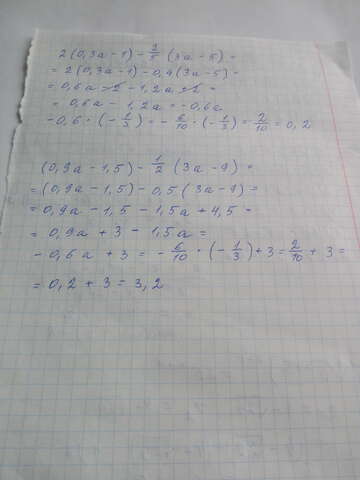 2(0,3a-1) - 2/5 (3a-5) =
= 2(0,3a-1) - 0,4(3a-5) =
= 0,6a - 2 - 1,2a + 2 =
= 0,6a - 1,2a = -0,6a
-0,6 · (-1/3) = -6/10 · (-1/3) = 2/10 = 0,2
(0,9a-1,5) - 1/2 (3a-9) =
= (0,9a-1,5) - 0,5(3a-9) =
= 0,9a - 1,5 - 1,5a + 4,5 =
= 0,9a + 3 - 1,5a =
-0,6a + 3 = -6/10 · (-1/3) + 3 = 2/10 + 3 =
= 0,2 + 3 = 3,2